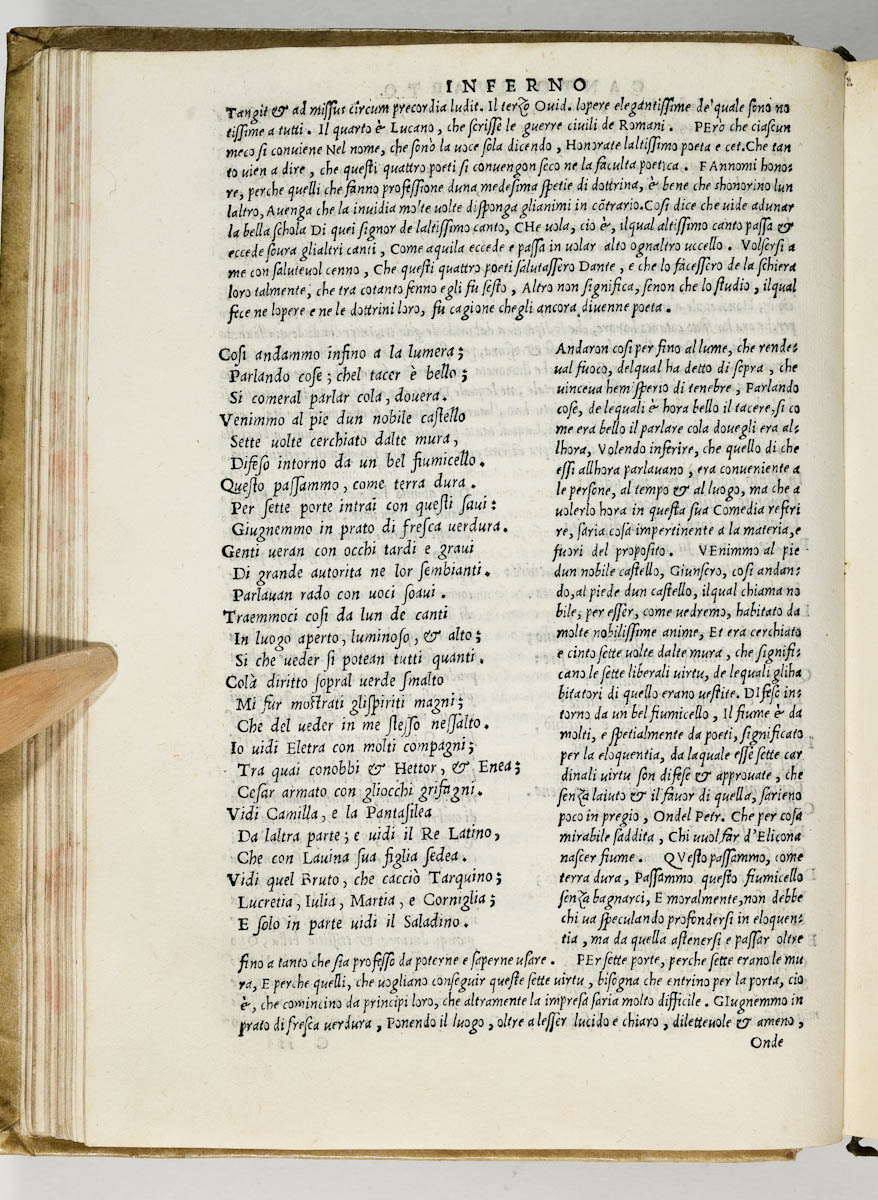 INFERNO
Tangit & ad missus circum precordia ludit. Il terzo Ouid. lopere elegantissime de'quale sono no
tissime a tutti. Il quarto è Lucano, che scrisse le guerre ciuili de Romani. PErò che ciascun
meco si conuiene Nel nome, che sonò la uoce sola dicendo, Honorate laltissimo poeta e cet. Che tan
to uien a dire, che questi quattro poeti si conuengon seco ne la faculta poetica. FAnnomi hono-
re, perche quelli che fanno professione duna medesima spetie di dottrina, è bene che shonorino lun
laltro, Auenga che la inuidia molte uolte disponga glianimi in cōtrario. Cosi dice che uide adunar
la bella schola Di quei signor de laltissimo canto, CHe uola, cio è, ilqual altissimo canto passa &
eccede soura glialtri canti, Come aquila eccede e passa in uolar alto ognaltro uccello. Volsersi a
me con saluteuol cenno, Che questi quattro poeti salutassero Dante, e che lo facessero de la schiera
loro talmente, che tra cotanto senno egli fu sesto, Altro non significa, senon che lo studio, ilqual
fece ne lopere e ne le dottrini loro, fu cagione chegli ancora diuenne poeta.
Cosi andammo infino a la lumera;
Parlando cose; chel tacer è bello;
Si comeral parlar cola, douera.
Venimmo al pie dun nobile castello
Sette uolte cerchiato dalte mura,
Difeso intorno da un bel fiumicello.
Questo passammo, come terra dura.
Per sette porte intrai con questi saui:
Giugnemmo in prato di fresca uerdura.
Genti ueran con occhi tardi e graui
Di grande autorita ne lor sembianti.
Parlauan rado con uoci soaui.
Traemmoci cosi da lun de canti
In luogo aperto, luminoso, & alto;
Si che ueder si potean tutti quanti.
Colà diritto sopral uerde smalto
Mi fur mostrati glispiriti magni;
Che del ueder in me stesso nessalto.
Io uidi Eletra con molti compagni;
Tra quai conobbi & Hettor, & Enea;
Cesar armato con gliocchi grifagni.
Vidi Camilla, e la Pantasilea
Da laltra parte; e uidi il Re Latino,
Che con Lauina sua figlia sedea.
Vidi quel Bruto, che cacciò Tarquino;
Lucretia, Iulia, Martia, e Corniglia;
E solo in parte uidi il Saladino.
Andaron cosi per fino al lume, che rende-
ual fuoco, delqual ha detto di sopra, che
uinceua hemisperio di tenebre, Parlando
cose, de lequali è hora bello il tacere, si co
me era bello il parlare cola douegli era al-
lhora, Volendo inferire, che quello di che
essi allhora parlauano, era conueniente a
le persone, al tempo & al luogo, ma che a
uolerlo hora in questa sua Comedia referi
re, saria cosa impertinente a la materia, e
fuori del proposito. VEnimmo al pie
dun nobile castello, Giunsero, cosi andan-
do, al piede dun castello, ilqual chiama no
bile, per esser, come uedremo, habitato da
molte nobilissime anime, Et era cerchiato
e cinto sette uolte dalte mura, che signifi-
cano le sette liberali uirtu, de lequali gliha
bitatori di quello erano uestite. DIfeso in-
torno da un bel fiumicello, Il fiume è da
molti, e spetialmente da poeti, significato
per la eloquentia, da laquale esse sette car
dinali uirtu son difese & approuate, che
senza laiuto & il fauor di quella, sarieno
poco in pregio, Ondel Petr. Che per cosa
mirabile saddita, Chi uuol far d'Elicona
nascer fiume. QVesto passammo, come
terra dura, Passammo questo fiumicello
senza bagnarci, E moralmente, non debbe
chi ua speculando profondersi in eloquen-
tia, ma da quella astenersi e passar oltre
fino a tanto che sia professo da poterne e saperne usare. PEr sette porte, perche sette erano le mu
ra, E perche quelli, che uogliano conseguir queste sette uirtu, bisogna che entrino per la porta, cio
è, che comincino da principi loro, che altramente la impresa saria molto difficile. GIugnemmo in
prato di fresca uerdura, Ponendo il luogo, oltre a lesser lucido e chiaro, diletteuole & ameno,
Onde